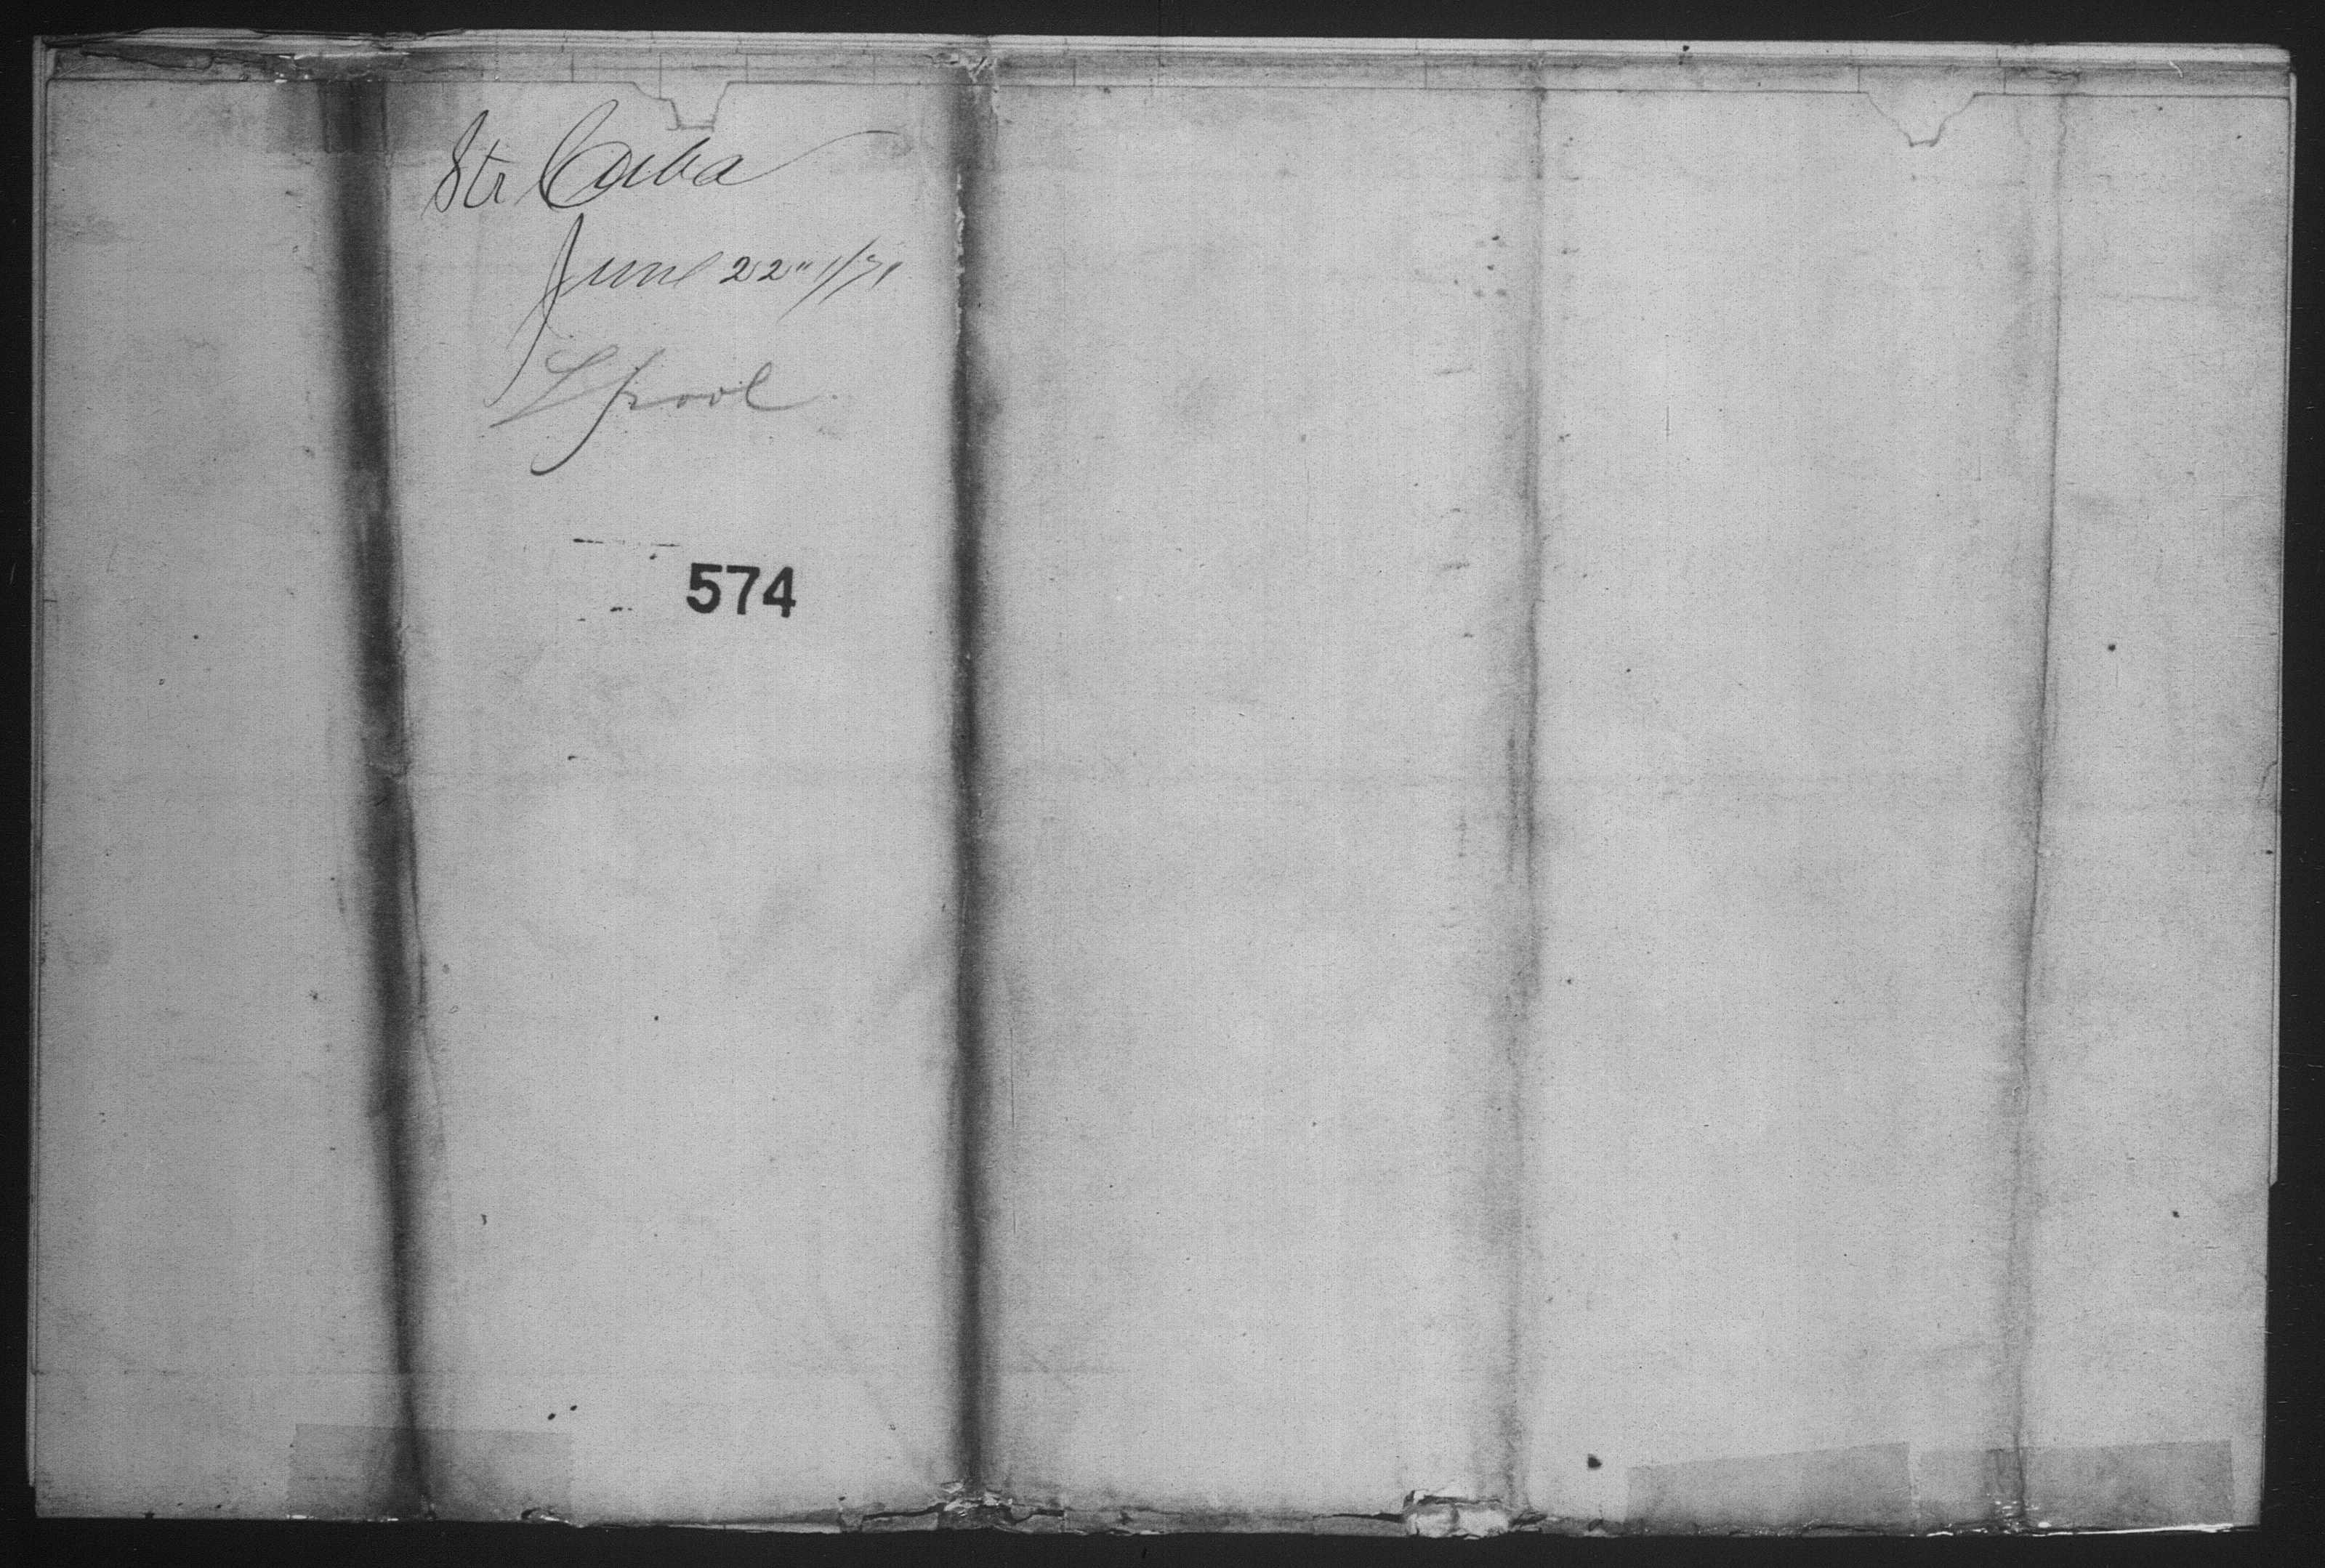 Str Cuba
June 22" 1/71
Lpool
574